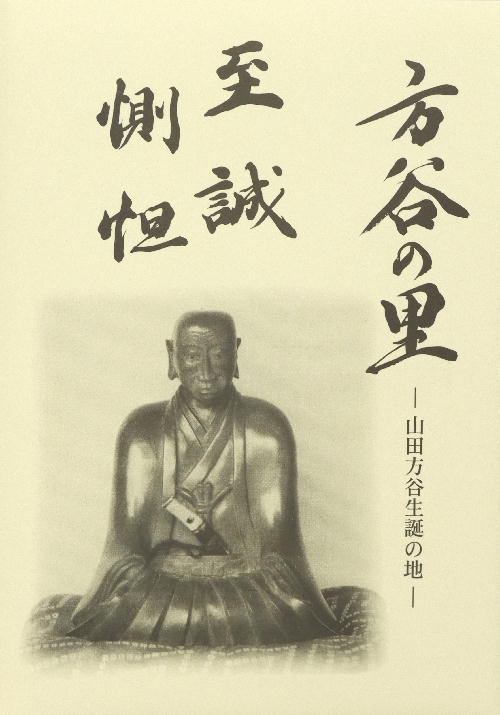 方谷の里
―山田方谷生誕の地―
至誠
惻怛